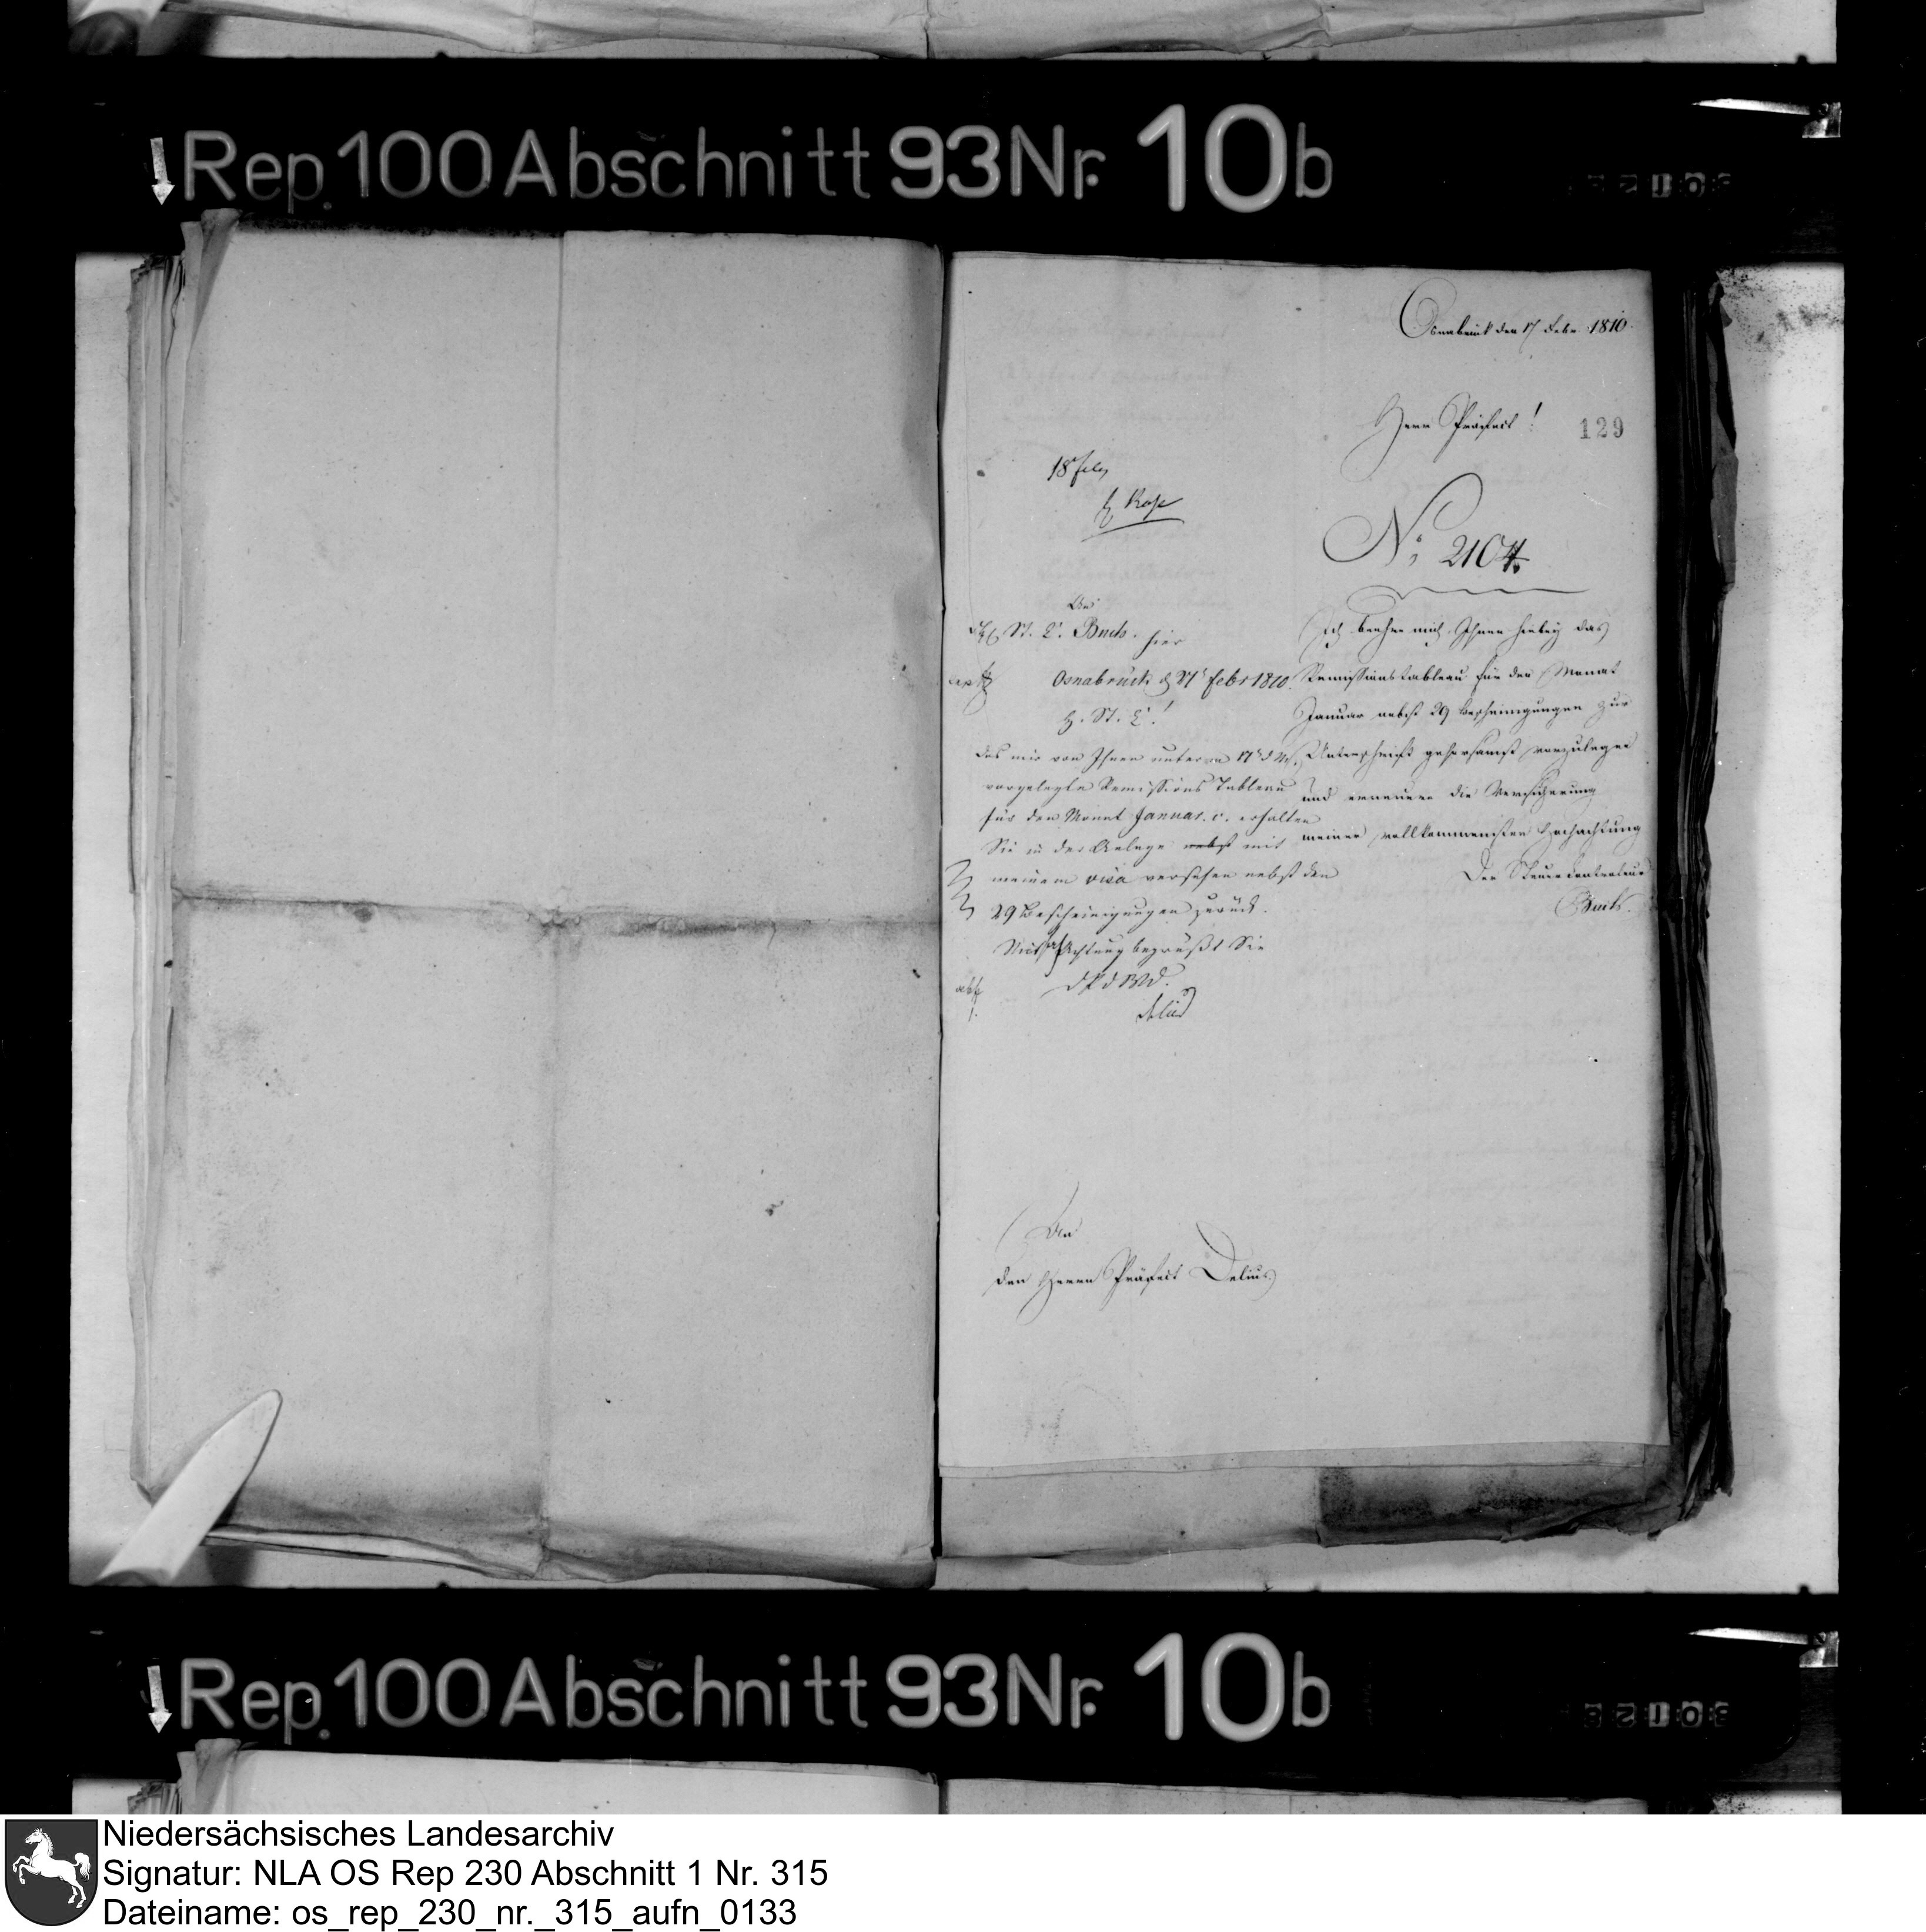 Rep. 100 Abschnitt 93 Nr. 10b
Osnabrück den 17 Febr. 1810.
Herr Präfect!
129
18 Febr
No 2104.
Ich beehre mich Ihnen hiebey das
Remissionstableau für den Monat
Januar nebst 29 Bescheinigungen zur
Unterschrift gehorsamst vorzulegen
und erneuere die Versicherung
meiner vollkommensten Hochachtung
Der Steuercontroleur
An
St. C. hier
Osnabrück d 21 Febr 1810.
H. St. C.!
Das mir von Ihnen unterm 17 d M.
vorgelegte Remissions Tableau
für den Monat Januar. c. erhalten
Sie in der Anlage nebst mit
meinem visa versehen nebst den
29 Bescheinigungen zurück.
Mit Achtung begrüßt Sie
An
den Herrn Präfect Delius
Rep. 100 Abschnitt 93 Nr. 10b
Niedersächsisches Landesarchiv
Signatur: NLA OS Rep 230 Abschnitt 1 Nr. 315
Dateiname: os_rep_230_nr._315_aufn_0133